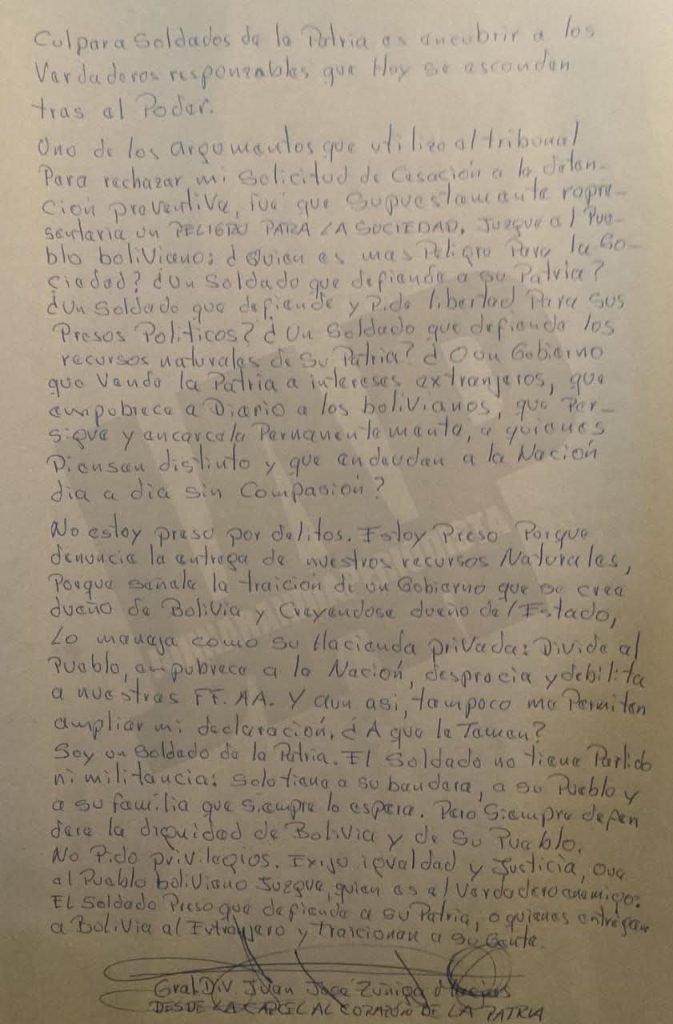 Culpar a Soldados de la Patria es encubrir a los
Verdaderos responzables que Hoy se esconden
tras el Poder.
Uno de los argumentos que utilizo el tribunal
Para rechazar mi Solicitud de Cesación a la deten-
ción preventiva, fué que Supuestamente repre-
sentaria un PELIGRO PARA LA SOCIEDAD. Juzgue el Pue-
blo boliviano: ¿Quien es mas Peligro Para la So-
ciedad? ¿Un Soldado que defiende a su Patria?
¿Un Soldado que defiende y Pide libertad Para sus
Presos Politicos? ¿Un Soldado que defiende los
recursos naturales de Su Patria? ¿O un Gobierno
que Vende la Patria a intereses extranjeros, que
empobrece a Diario a los bolivianos, que Per-
sigue y encarcela Permanentemente, a quienes
Piensan distinto y que endeudan a la Nación
dia a dia sin Compasión?
No estoy preso por delitos. Estoy Preso Porque
denuncie la entrega de nuestros recursos Naturales,
Porque señale la traición de un Gobierno que se cree
dueño de Bolivia y Creyendose dueño del Estado,
Lo maneja como su Hacienda privada: Divide al
Pueblo, empobrece a la Nación, desprecia y debilita
a nuestras FF. AA. Y aun asi, tampoco me Permiten
ampliar mi declaración. ¿A que le Temen?
Soy un Soldado de la Patria. El Soldado no tiene Partido
ni militancia: Solo tiene a su bandera, a su Pueblo y
a su familia que siempre lo espera. Pero Siempre defen
dera la dignidad de Bolivia y de Su Pueblo.
No Pido privilegios. Exijo igualdad y Justicia, Que
el Pueblo boliviano Juzgue, quien es el Verdadero enemigo:
El Soldado Preso que defiende a su Patria, o quienes entregan
a Bolivia al Extranjero y traicionan a su Gente.
Gral. Div. Juan José Zuñiga Macias
DESDE LA CARCEL AL CORAZON DE LA PATRIA